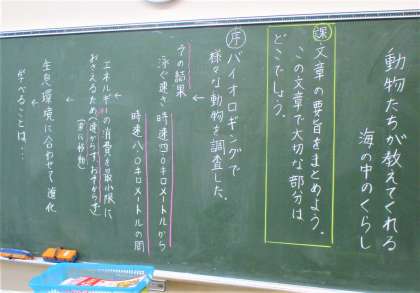 動物たちが教えてくれる
海の中のくらし
課 文章の要旨をまとめよう。
この文章で大切な部分は
どこでしょう。
序 バイオロギングで
様々な動物を調査した。
↓
その結果
泳ぐ速さ 時速四.〇キロメートルから
時速八.〇キロメートルの間
↓
エネルギーの消費を最小限に
おさえるため(速からず、おそからず)
↓
生息環境に合わせて進化
↓
学べることは…